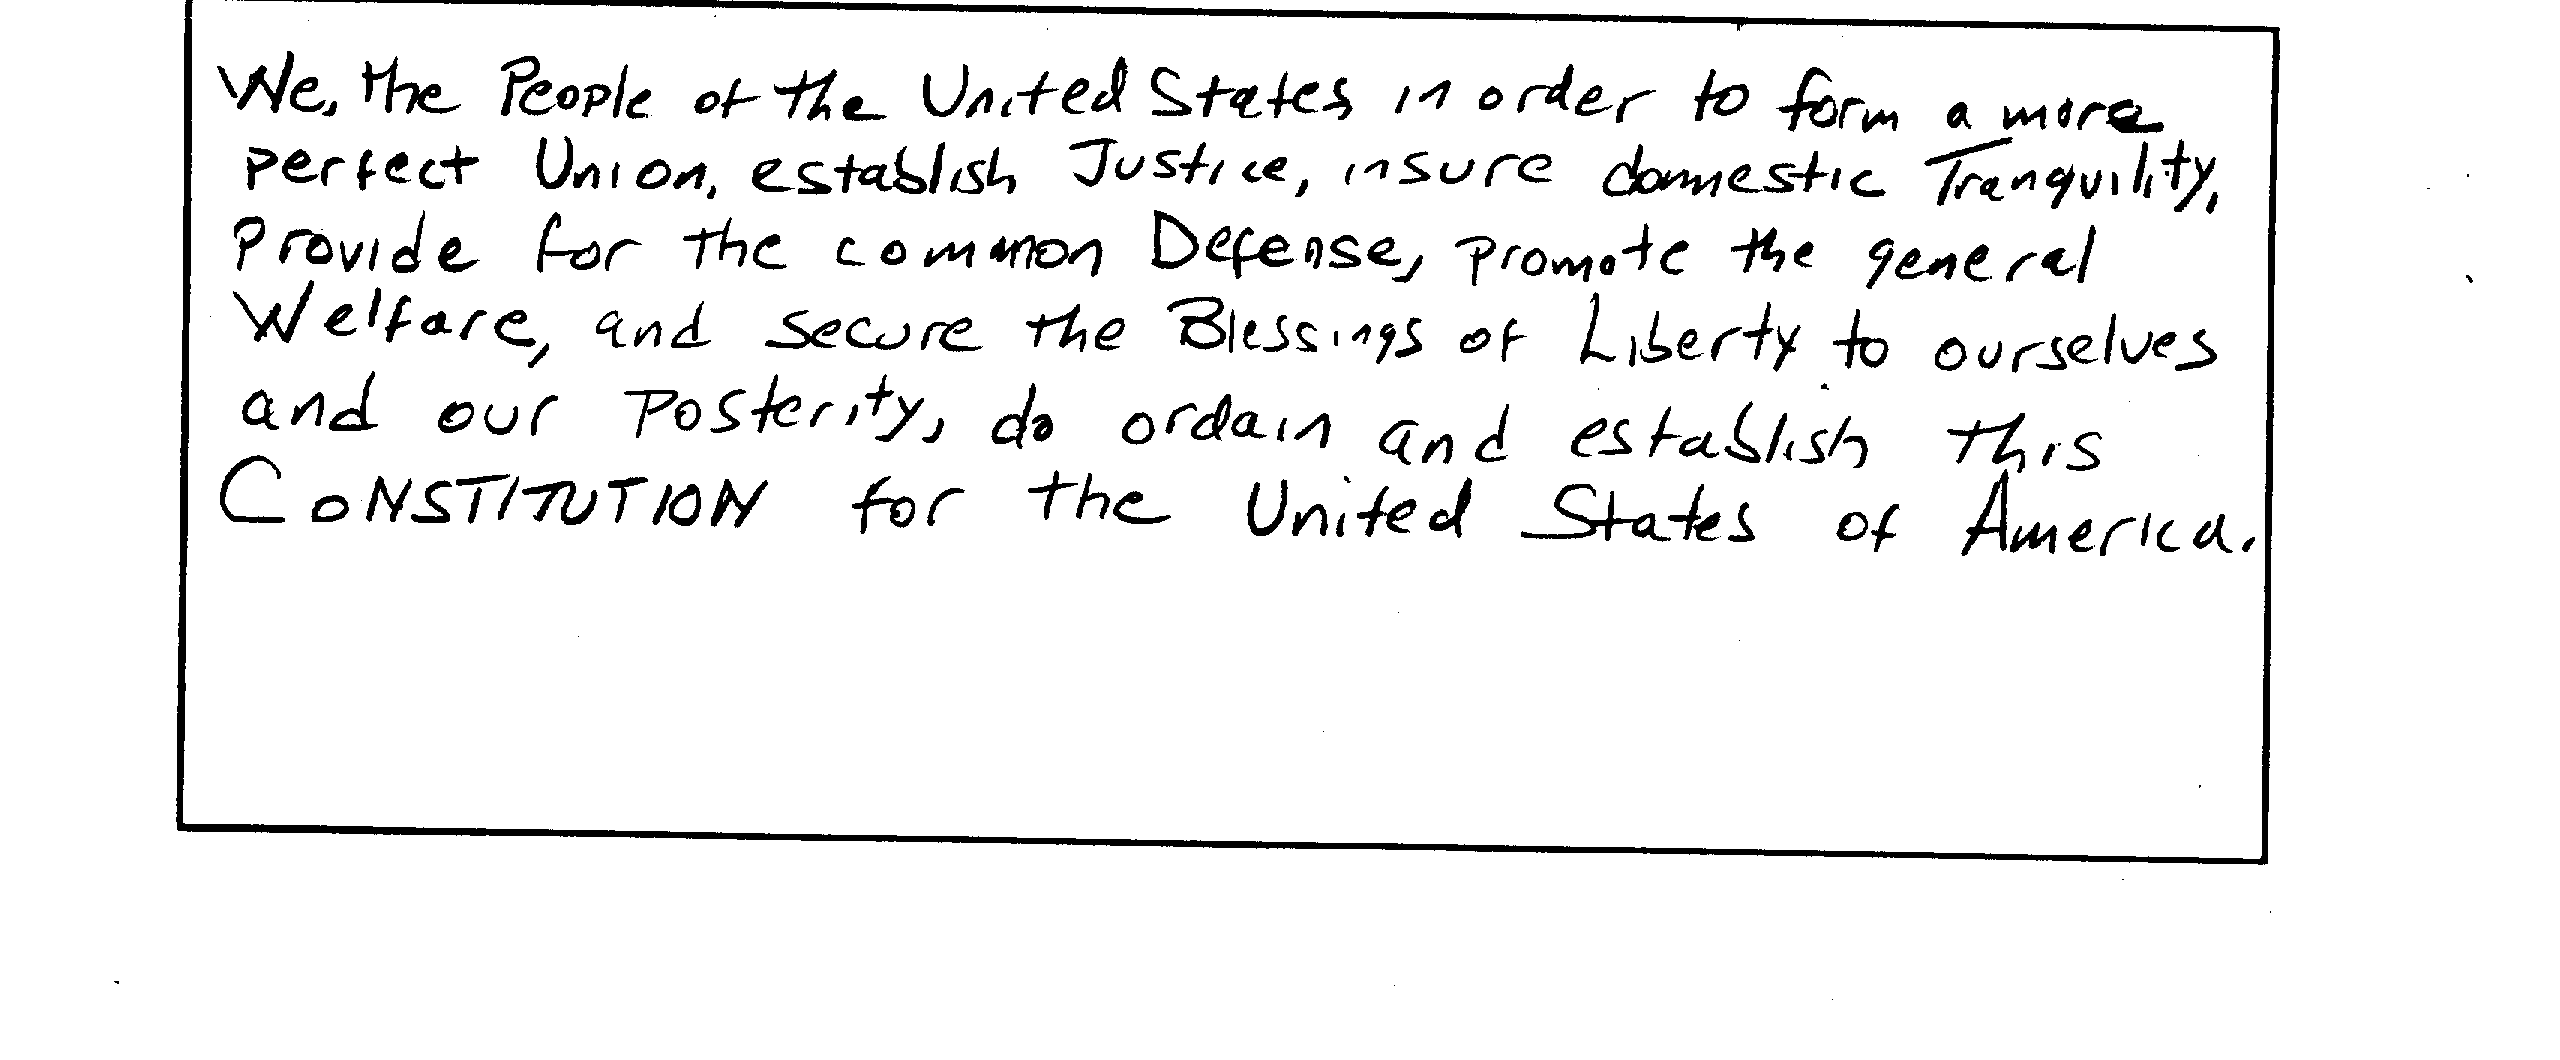 We, the People of the United States in order to form a more
perfect Union, establish Justice, insure domestic Tranquility,
Provide for the common Defense, promote the general
Welfare, and secure the Blessings of Liberty to ourselves
and our Posterity, do ordain and establish this
CONSTITUTION for the United States of America.